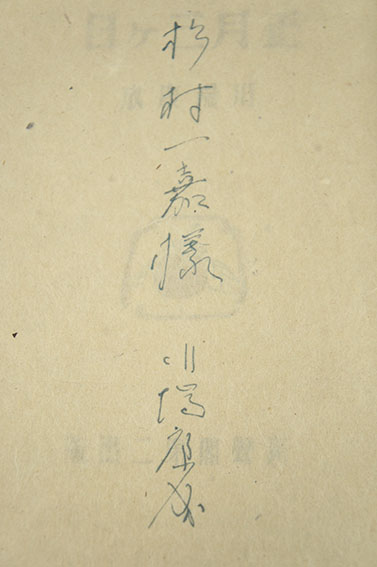 杉村一嘉様
川端康成